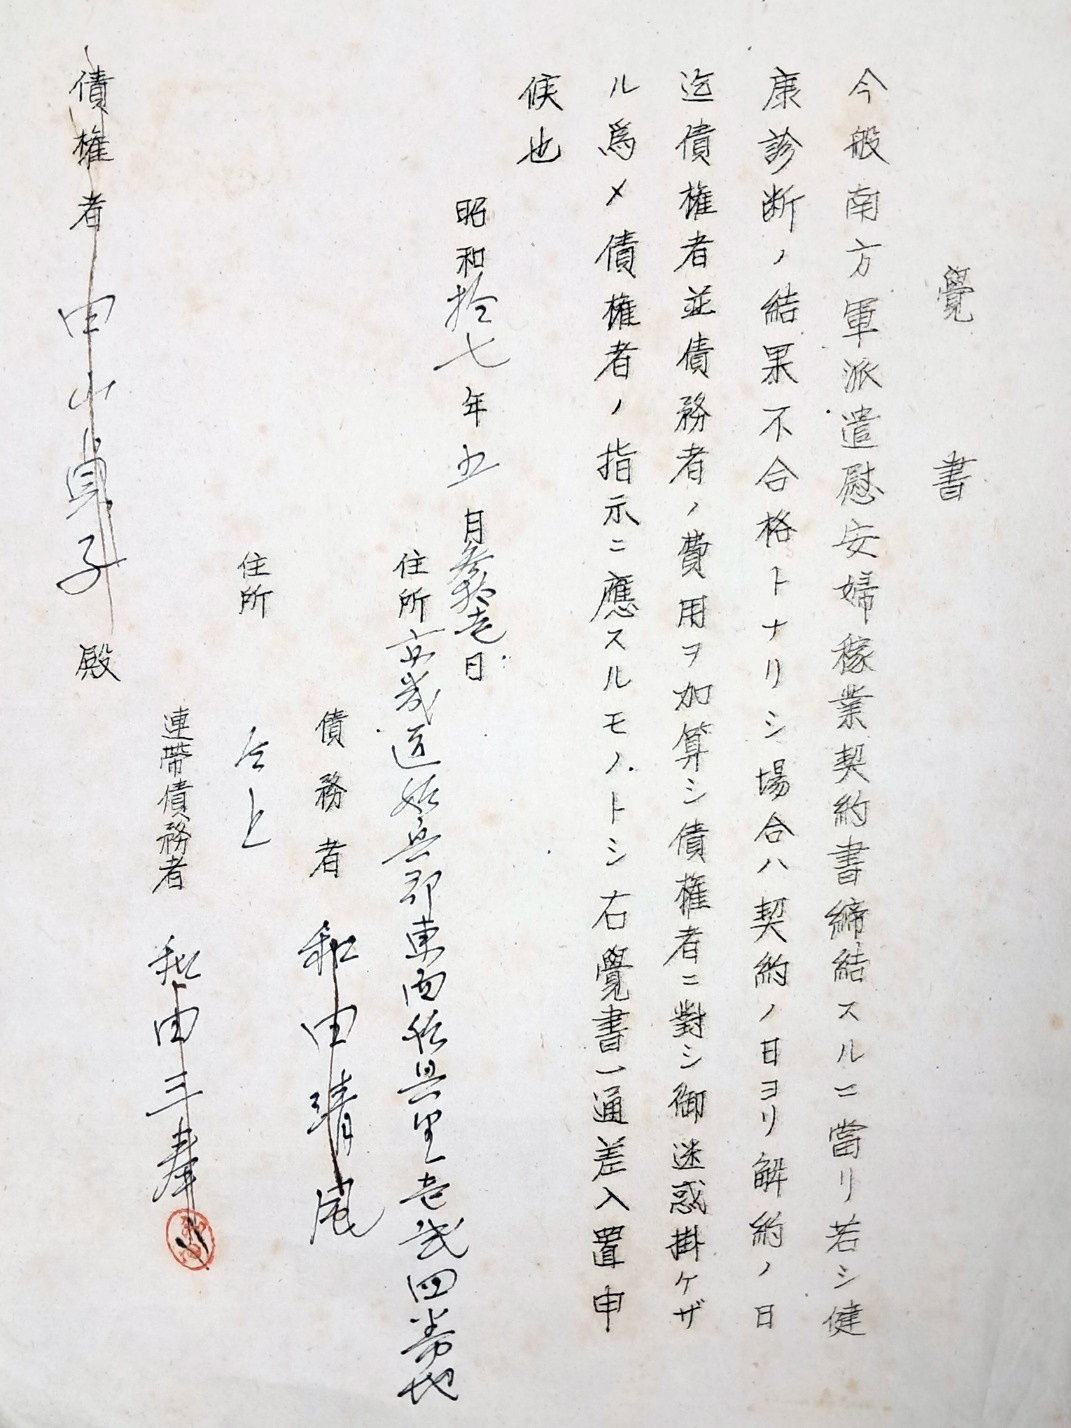 覺書
今般南方軍派遣慰安婦稼業契約書締結スルニ當リ若シ健
康診断ノ結果不合格トナリシ場合ハ契約ノ日ヨリ解約ノ日
迄債権者並債務者ノ費用ヲ加算シ債権者ニ對シ御迷惑掛ケザ
ル爲メ債権者ノ指示ニ應スルモノトシ右覺書一通差入置申
候也
昭和拾七年五月参拾壱日
住所 京畿道 郡東面 里壱弐四番地
債務者 和田靖
住所 仝上
連帯債務者 和田三奉
債権者 中山貞子 殿